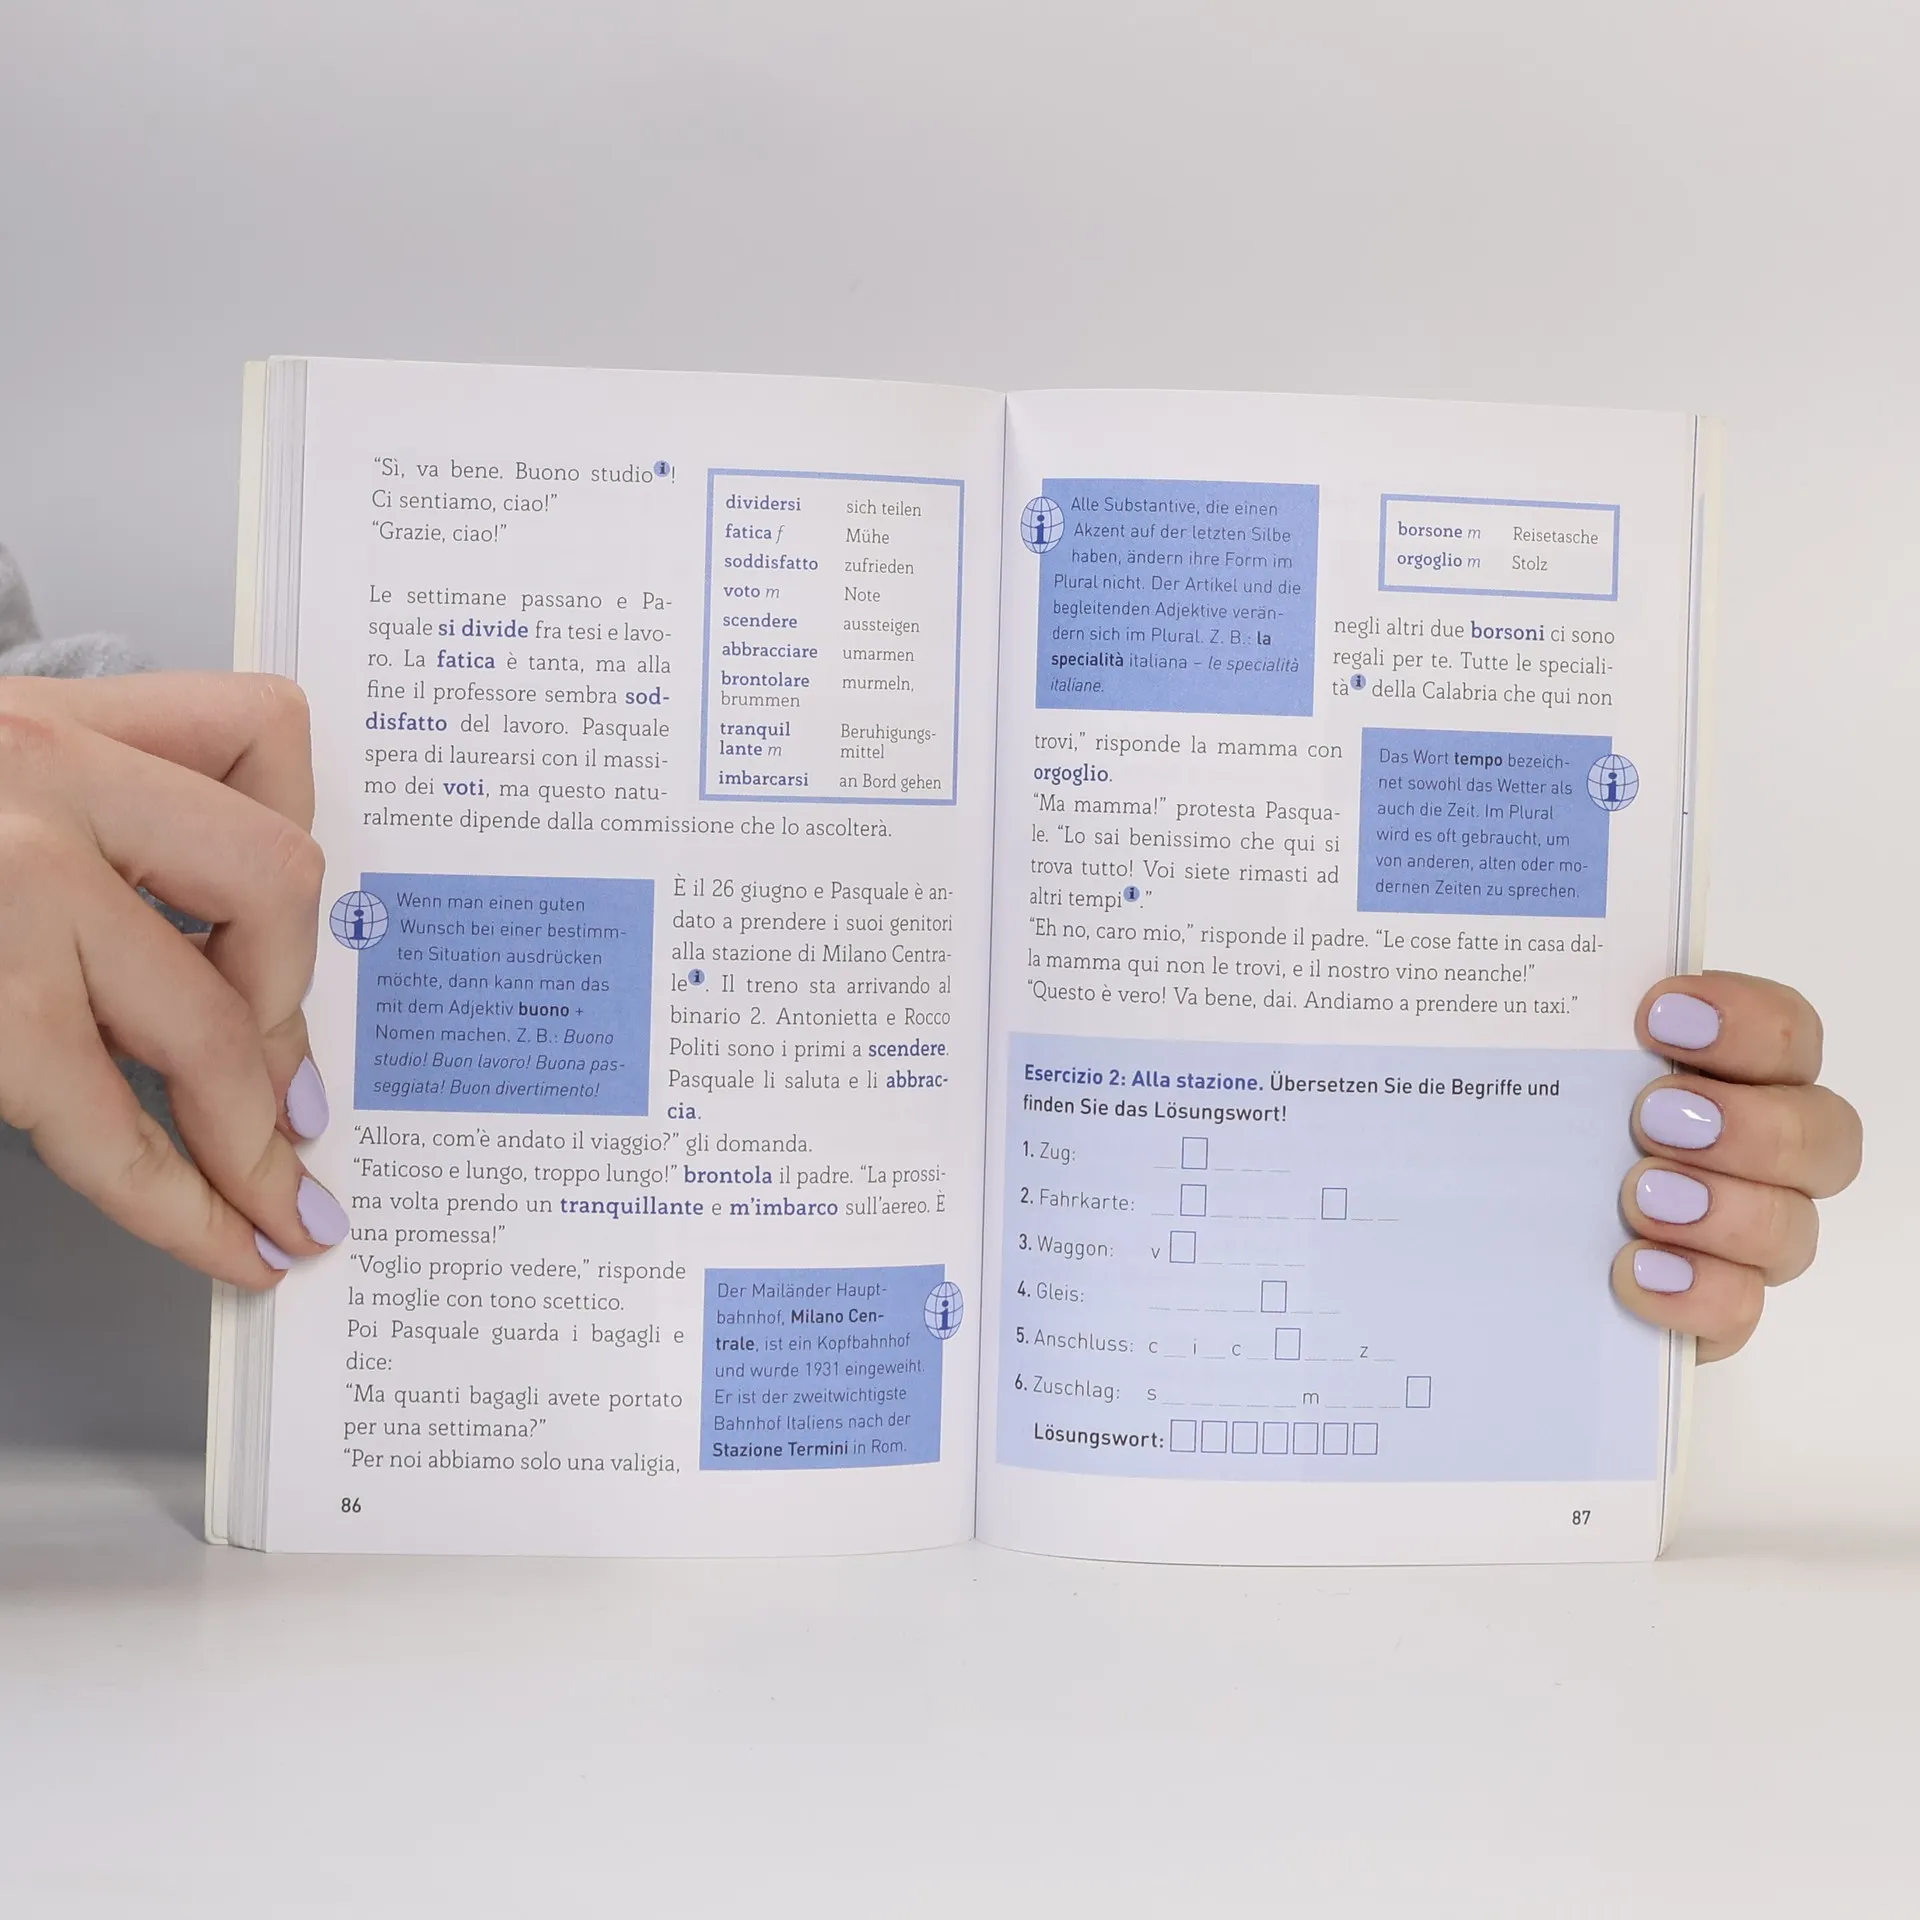 “Sì, va bene. Buono studio i!
Ci sentiamo, ciao!”
“Grazie, ciao!”
Le settimane passano e Pa-
squale si divide fra tesi e lavo-
ro. La fatica è tanta, ma alla
fine il professore sembra sod-
disfatto del lavoro. Pasquale
spera di laurearsi con il massi-
mo dei voti, ma questo natu-
ralmente dipende dalla commissione che lo ascolterà.
dividersi sich teilen
fatica f Mühe
soddisfatto zufrieden
voto m Note
scendere aussteigen
abbracciare umarmen
brontolare murmeln,
brummen
tranquil Beruhigungs-
lante m mittel
imbarcarsi an Bord gehen
i
Wenn man einen guten
Wunsch bei einer bestimm-
ten Situation ausdrücken
möchte, dann kann man das
mit dem Adjektiv buono +
Nomen machen. Z. B.: Buono
studio! Buon lavoro! Buona pas-
seggiata! Buon divertimento!
È il 26 giugno e Pasquale è an-
dato a prendere i suoi genitori
alla stazione di Milano Centra-
le i. Il treno sta arrivando al
binario 2. Antonietta e Rocco
Politi sono i primi a scendere.
Pasquale li saluta e li abbrac-
cia.
“Allora, com’è andato il viaggio?” gli domanda.
“Faticoso e lungo, troppo lungo!” brontola il padre. “La prossi-
ma volta prendo un tranquillante e m’imbarco sull’aereo. È
una promessa!”
“Voglio proprio vedere,” risponde
la moglie con tono scettico.
Poi Pasquale guarda i bagagli e
dice:
“Ma quanti bagagli avete portato
per una settimana?”
“Per noi abbiamo solo una valigia,
i
Der Mailänder Haupt-
bahnhof, Milano Cen-
trale, ist ein Kopfbahnhof
und wurde 1931 eingeweiht.
Er ist der zweitwichtigste
Bahnhof Italiens nach der
Stazione Termini in Rom.
86
i
Alle Substantive, die einen
Akzent auf der letzten Silbe
haben, ändern ihre Form im
Plural nicht. Der Artikel und die
begleitenden Adjektive verän-
dern sich im Plural. Z. B.: la
specialità italiana – le specialità
italiane.
borsone m Reisetasche
orgoglio m Stolz
negli altri due borsoni ci sono
regali per te. Tutte le speciali-
tà i della Calabria che qui non
trovi,” risponde la mamma con
orgoglio.
“Ma mamma!” protesta Pasqua-
le. “Lo sai benissimo che qui si
trova tutto! Voi siete rimasti ad
altri tempi i.”
i
Das Wort tempo bezeich-
net sowohl das Wetter als
auch die Zeit. Im Plural
wird es oft gebraucht, um
von anderen, alten oder mo-
dernen Zeiten zu sprechen.
“Eh no, caro mio,” risponde il padre. “Le cose fatte in casa dal-
la mamma qui non le trovi, e il nostro vino neanche!”
“Questo è vero! Va bene, dai. Andiamo a prendere un taxi.”
Esercizio 2: Alla stazione. Übersetzen Sie die Begriffe und
finden Sie das Lösungswort!
1. Zug: _ □ _ _ _
2. Fahrkarte: _ □ _ _ _ _ □ _ _
3. Waggon: v □ _ _ _ _
4. Gleis: _ _ _ _ □ _ _
5. Anschluss: c _ i _ c _ □ _ _ z _
6. Zuschlag: s _ _ _ _ _ m _ _ _ □
Lösungswort: □□□□□□□
87